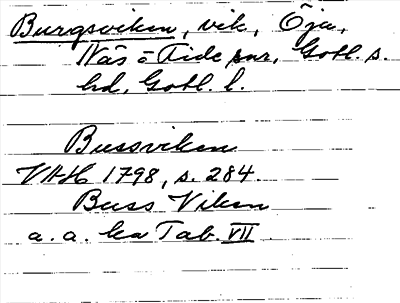 Burgsviken, vik, Öja,
Näs o Fide snr, Gotl. s.
hd, Gotl. l.
Bussviken
VAH 1798, s. 284.
Buss Viken
a. a. ka Tab. VII